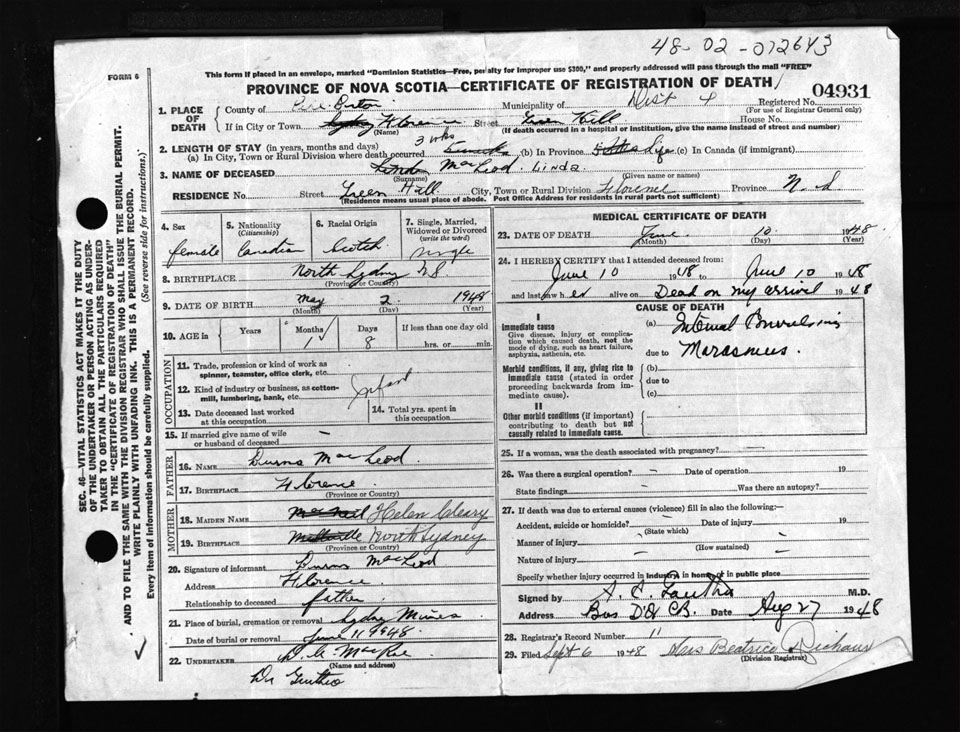 48-02-012643
FORM 6
This form if placed in an envelope, marked "Dominion Statistics—Free, penalty for improper use $300," and properly addressed will pass through the mail "FREE"
PROVINCE OF NOVA SCOTIA—CERTIFICATE OF REGISTRATION OF DEATH
04931
1. PLACE OF DEATH
County of Cape Breton Municipality of Dist 4 Registered No.
(For use of Registrar General only)
If in City or Town Florence Street Green Hill House No.
(Name) (If death occurred in a hospital or institution, give the name instead of street and number)
2. LENGTH OF STAY (in years, months and days) 3 wks
(a) In City, Town or Rural Division where death occurred (b) In Province Life (c) In Canada (if immigrant)
3. NAME OF DECEASED MacLeod Linda
(Surname) (Given name or names)
RESIDENCE No. Street Green Hill City, Town or Rural Division Florence Province N.S
(Residence means usual place of abode. Post Office Address for residents in rural parts not sufficient)
4. Sex
female
5. Nationality
(Citizenship)
Canadian
6. Racial Origin
Scotch
7. Single, Married, Widowed or Divorced
(write the word)
single
8. BIRTHPLACE North Sydney N.S
(Province or Country)
9. DATE OF BIRTH May 2 1948
(Month) (Day) (Year)
10. AGE in Years Months Days If less than one day old
1 8 hrs. or min.
OCCUPATION
11. Trade, profession or kind of work as spinner, teamster, office clerk, etc.
12. Kind of industry or business, as cotton-mill, lumbering, bank, etc.
Infant
13. Date deceased last worked at this occupation
14. Total yrs. spent in this occupation
15. If married give name of wife or husband of deceased –
FATHER
16. NAME Burns MacLeod
17. BIRTHPLACE Florence
(Province or Country)
MOTHER
18. MAIDEN NAME Helen Cleary
19. BIRTHPLACE North Sydney
(Province or Country)
20. Signature of informant Burns MacLeod
Address Florence
Relationship to deceased father
21. Place of burial, cremation or removal Sydney Mines
Date of burial or removal June 11 1948
22. UNDERTAKER MacRae
(Name and address)
MEDICAL CERTIFICATE OF DEATH
23. DATE OF DEATH June 10 1948
(Month) (Day) (Year)
24. I HEREBY CERTIFY that I attended deceased from:
June 10 1948 to June 10 1948
and last saw her alive on Dead on my arrival 1948
CAUSE OF DEATH
I
Immediate cause
Give disease, injury or complication which caused death, not the mode of dying, such as heart failure, asphyxia, asthenia, etc.
(a) Internal
due to Marasmus.
Morbid conditions, if any, giving rise to immediate cause (stated in order proceeding backwards from immediate cause).
(b)
due to
(c)
II
Other morbid conditions (if important) contributing to death but not causally related to immediate cause.
25. If a woman, was the death associated with pregnancy?
26. Was there a surgical operation? – Date of operation 19
State findings – Was there an autopsy?
27. If death was due to external causes (violence) fill in also the following:—
Accident, suicide or homicide? – Date of injury 19
(State which)
Manner of injury –
(How sustained)
Nature of injury –
Specify whether injury occurred in industry, in home or in public place
Signed by M.D.
Address Date Aug 27 1948
28. Registrar's Record Number 11
29. Filed Sept 6 1948 Mrs Beatrice
(Division Registrar)
SEC. 46—VITAL STATISTICS ACT MAKES IT THE DUTY OF THE UNDERTAKER OR PERSON ACTING AS UNDERTAKER TO OBTAIN ALL THE PARTICULARS REQUIRED IN THE "CERTIFICATE OF REGISTRATION OF DEATH" AND TO FILE THE SAME WITH THE DIVISION REGISTRAR WHO SHALL ISSUE THE BURIAL PERMIT.
WRITE PLAINLY WITH UNFADING INK. THIS IS A PERMANENT RECORD.
Every item of information should be carefully supplied. (See reverse side for instructions.)